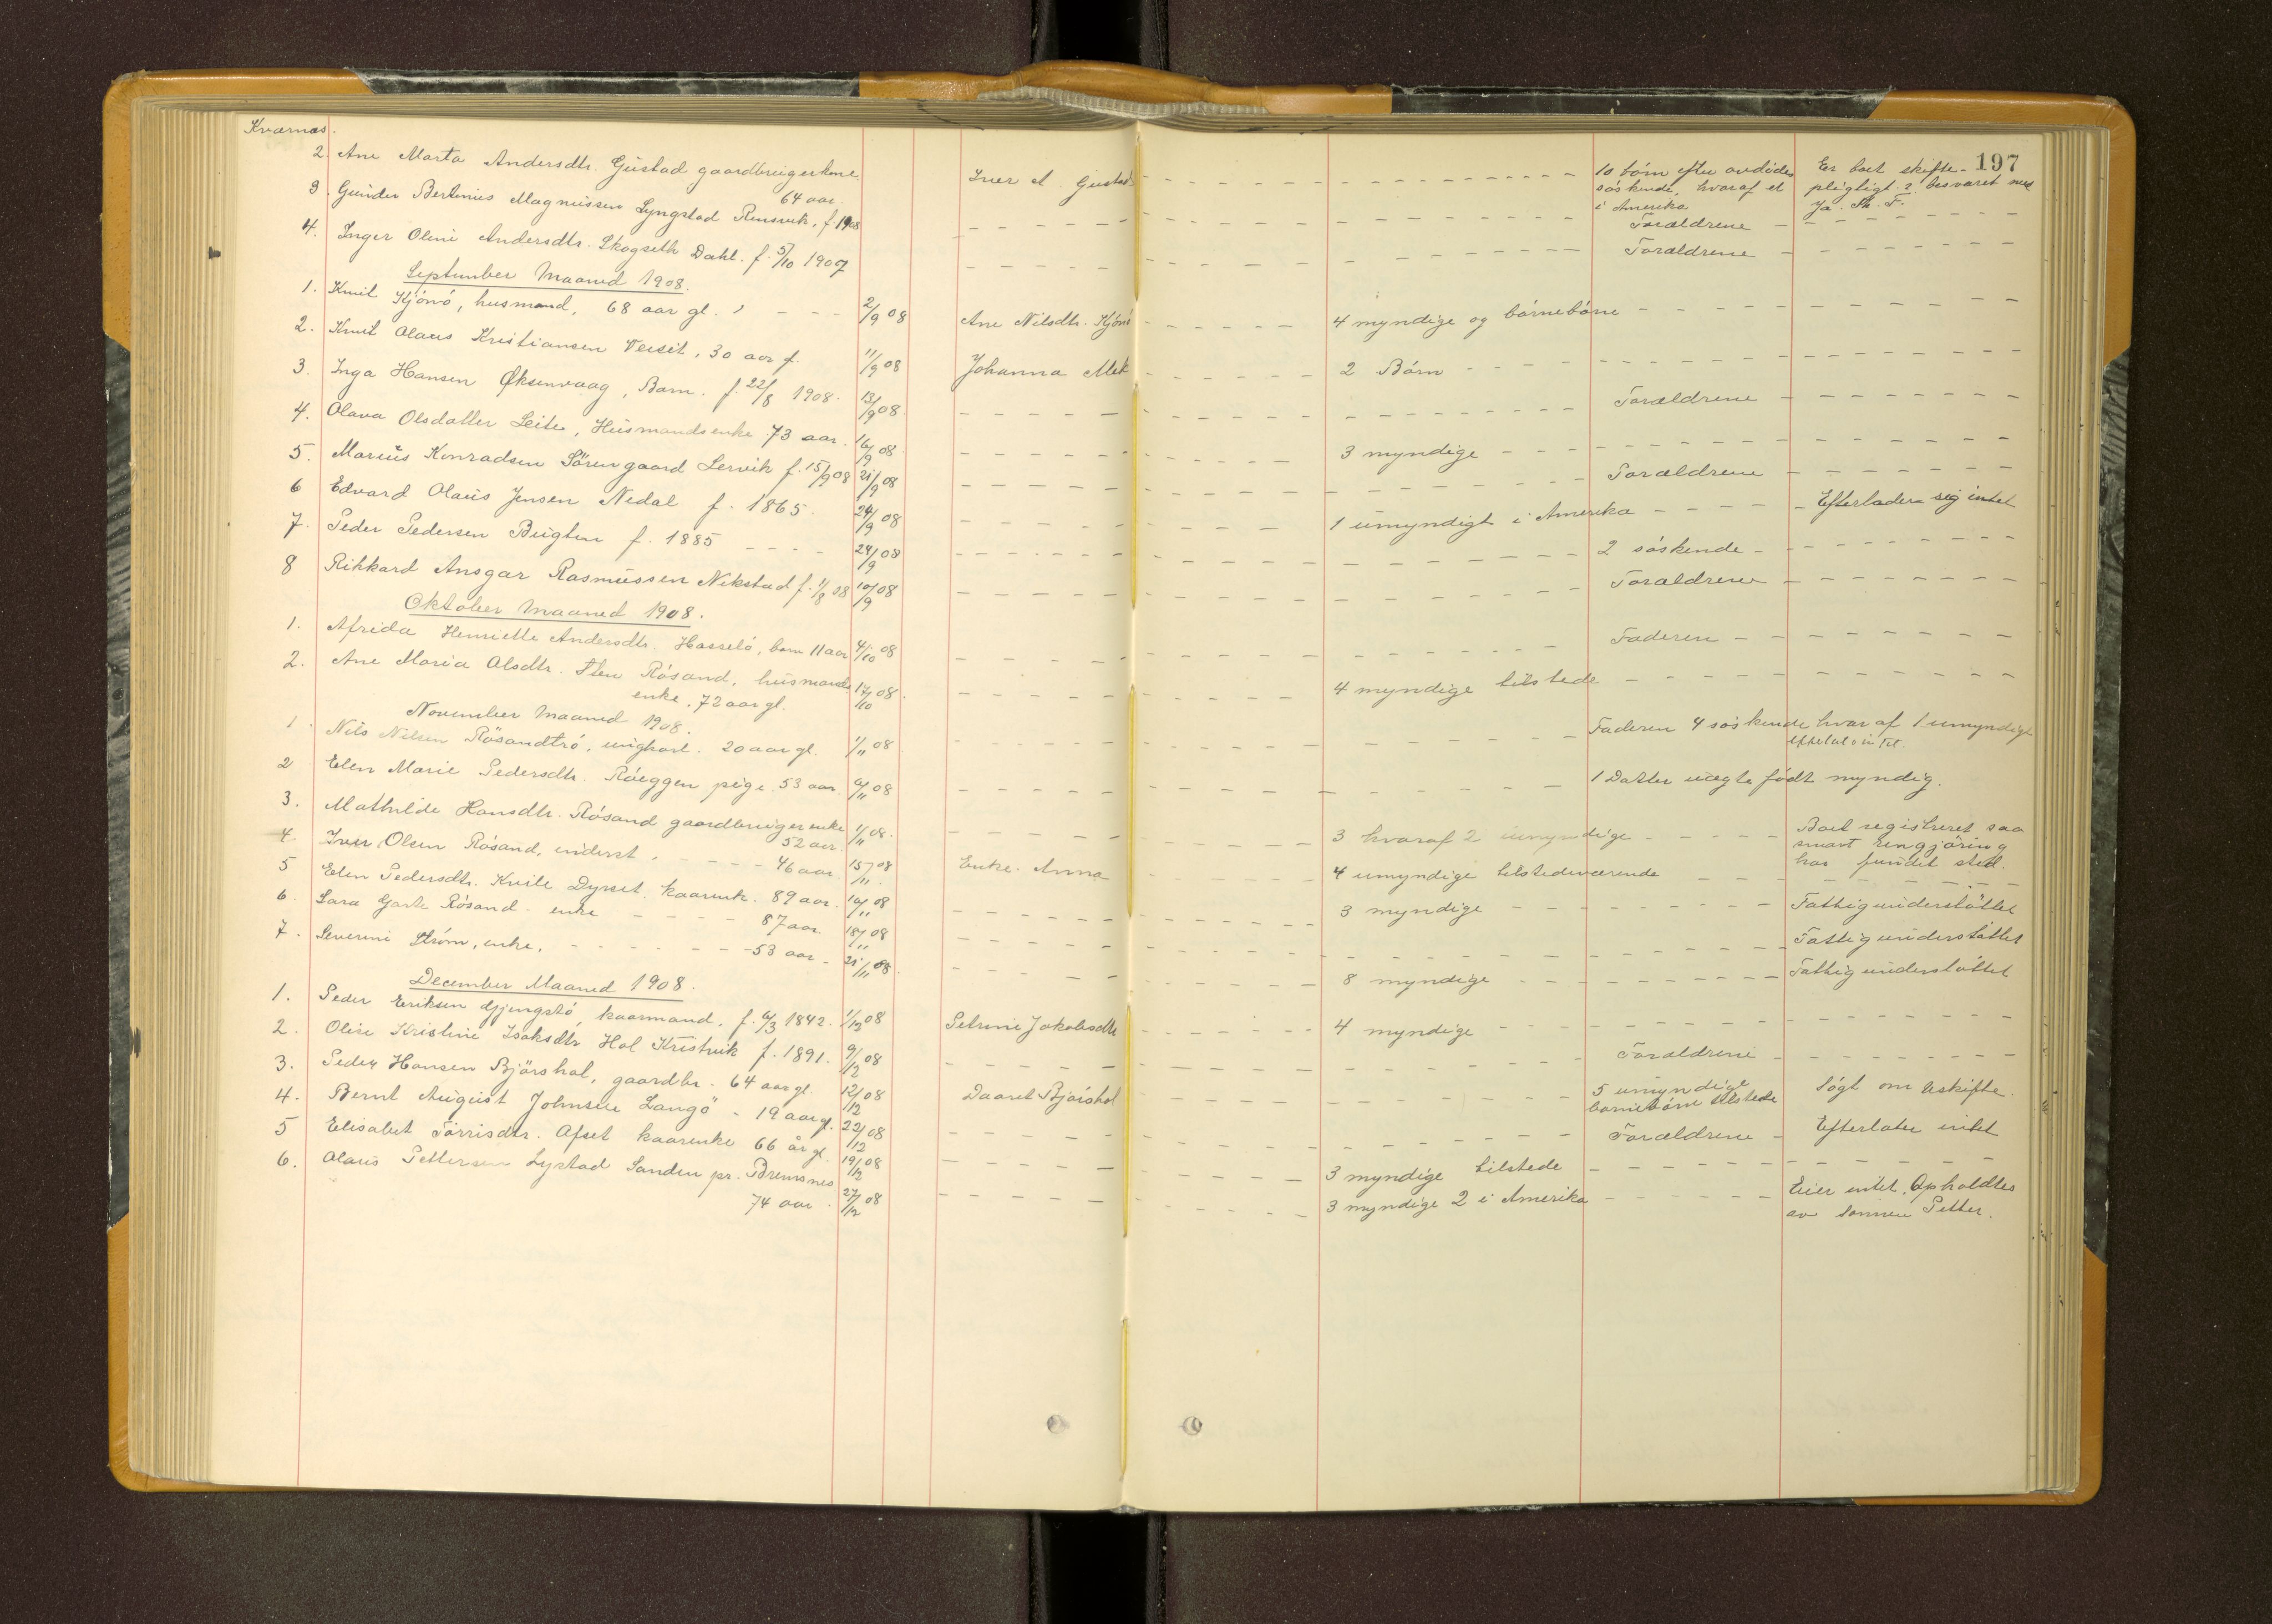 Kværnæs.
197
2. Ane Marta Andersdtr. Gustad gaardbrugerkone 64 aar. Iver A. Gustad 10 börn efter avdödes söskende, hvoraf et i Amerika Er boet skifte-pligtigt? besvaret med Ja. Th. F.
3. Gunder Bertinius Magnussen Lyngstad Rensvik, f. 1908 Forældrene
4. Inger Oline Andersdtr. Skogseth Dahl. f. 5/10 1907 Forældrene
September Maaned 1908.
1. Knut Kjönö, husmand, 68 aar gl. 2/9 08 Ane Nilsdtr. Kjönö 4 myndige og börnebörn
2. Knut Olaus Kristiansen Veiset, 30 aar f. 11/9 08 Johanna Mek 2 Börn
3. Inga Hansen Øksenvaag, Barn. f. 22/8 1908. 13/9 08 Forældrene
4. Olava Olsdatter Leite, Husmandsenke 73 aar. 16/9 08 3 myndige
5. Marius Konradsen Sörengaard Lervik f. 15/9 08 21/9 08 Forældrene
6 Edvard Olaus Jensen Nedal f. 1865. 24/9 08 1 umyndigt i Amerika Efterlader sig intet
7. Peder Pedersen Bugten f. 1885 24/9 08 2 söskende
8 Rikkard Ansgar Rasmussen Nekstad f. 1/8 08 10/9 08 Forældrene
Oktober Maaned 1908.
1. Afrida Henriette Andersdtr. Hasselö, barn 11 aar 4/10 08 Faderen
2. Ane Maria Olsdtr. Sten Rösand, husmands 17/10 08. 4 myndige tilstede
enke, 72 aar gl.
November Maaned 1908.
1. Nils Nilsen Rösandtrö, ungkarl. 20 aar gl. 1/11 08 Faderen 4 söskende hvoraf 1 umyndigt
Efterlat intet.
2 Elen Marie Pedersdtr. Röeggen pige 53 aar. 6/11 08 1 Datter uægte födt myndig.
3. Mathilde Hansdtr. Rösand gaardbrugerenke 52 aar. 1/11 08. 3 hvoraf 2 umyndige Boet registreret saa snart rengjöring har fundet sted.
4 Iver Olsen Rösand, inderst, 46 aar. 15/11 08 Enke. Anna 4 umyndige tilstedeværende
5 Elen Pedersdtr. Kvile Dyrset. kaarenke. 89 aar. 10/11 08 3 myndige Fattigunderstöttet
6. Sara Garte Rösand. enke 87 aar. 18/11 08 Fattigunderstöttet
7. Severine Ström, enke. 53 aar. 21/11 08 8 myndige Fattigunderstöttet
December Maaned 1908.
1. Peder Eriksen Gjengstö kaarmand. f. 6/3 1842. 1/12 08 Petrine Jakobsdtr 4 myndige
2. Oline Kristine Isaksdtr Hol Kristvik f. 1891. 9/12 08 Forældrene
3. Peder Hansen Bjöshol, gaardbr. 64 aar gl. 12/12 08 Daaret Bjöshol 5 umyndige barnebörn tilstede Sögt om uskifte.
4. Bernt August Johnsen Langö 19 aar gl. 22/12 08 Forældrene Efterlater intet
5 Elisabet Törrisdtr. Ofset kaarenke 66 år gl. 19/12 08 3 myndige tilstede
6. Olaus Pettersen Lystad Sanden pr. Bremsnes 27/12 08 3 myndige 2 i Amerika Eier intet. Opholdtes
74 aar. av sönnen Petter.